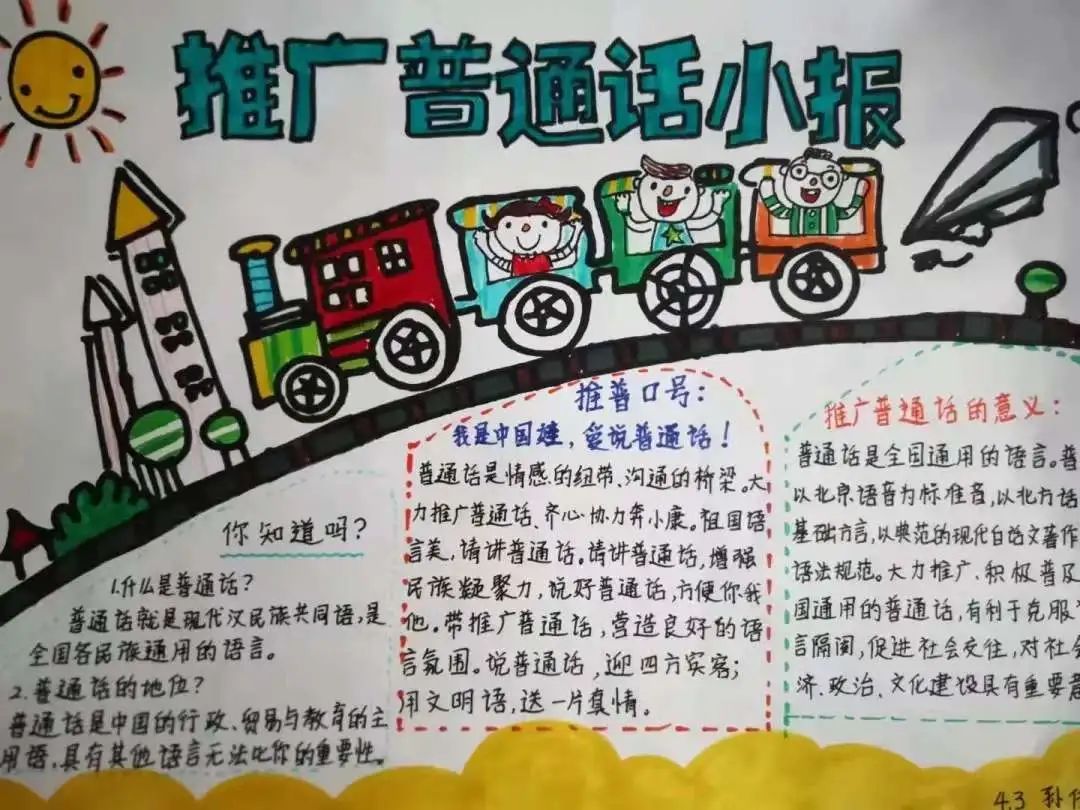 推广普通话小报
你知道吗?
1.什么是普通话?
普通话就是现代汉民族共同语,是
全国各民族通用的语言。
2.普通话的地位?
普通话是中国的行政、贸易与教育的主
用语,具有其他语言无法比你的重要性。
推普口号:
我是中国娃,爱说普通话!
普通话是情感的纽带、沟通的桥梁。大
力推广普通话、齐心协力奔小康。祖国语
言美,请讲普通话。请讲普通话,增强
民族凝聚力,说好普通话,方便你我
他。带推广普通话,营造良好的语
言氛围。说普通话,迎四方宾客;
用文明语,送一片真情。
推广普通话的意义:
普通话是全国通用的语言。普
以北京语音为标准音,以北方话
基础方言,以典范的现代白话文著作
语法规范。大力推广、积极普及
国通用的普通话,有利于克服
言隔阂,促进社会交往,对社会
济、政治、文化建设具有重要意
4.3 孙